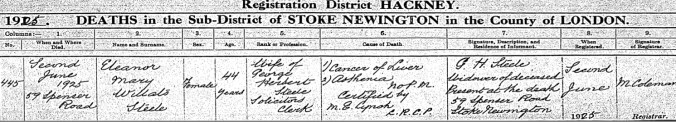 Registration District HACKNEY.
1925. DEATHS in the Sub-District of STOKE NEWINGTON in the County of LONDON.
Columns:— 1. 2. 3. 4. 5. 6. 7. 8. 9.
No. When and Where Died. Name and Surname. Sex. Age. Rank or Profession. Cause of Death. Signature, Description, and Residence of Informant. When Registered. Signature of Registrar.
445
Second
June
1925
59 Spenser
Road
Eleanor
Mary
Willats
Steele
Female
44
years
Wife of
George
Herbert
Steele
Solicitors
Clerk
1) Cancer of Liver
2) Asthenia
No P.M.
Certified by
M. E. Lynch
L.R.C.P.
G. H. Steele
Widower of deceased
Present at the death
59 Spenser Road
Stoke Newington
Second
June
1925
M. Coleman
Registrar.